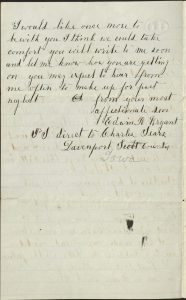 I would like once more to
be with you I think we could take
comfort you will write to me soon
and let me know how you are getting
on you may expect to hear from
me often to make up for past
neglect from your most
affectionate son
Edwin R
P.S Direct to Charles
Davenport Scott County
Iowa